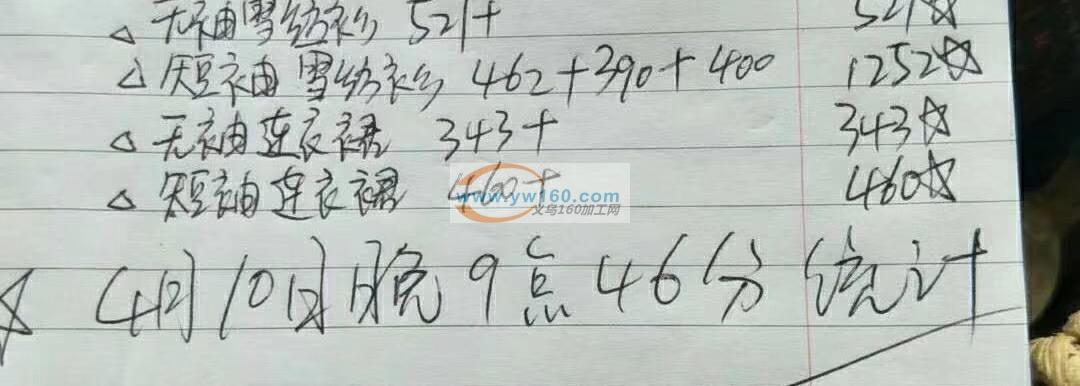 △ 无袖雪纺衫 521+ 521☆
△ 短袖雪纺衫 462+390+400 1252☆
△ 无袖连衣裙 343+ 343☆
△ 短袖连衣裙 460+ 460☆
www.yw160.com
义乌160加工网
☆ 4月10日晚9点46分统计